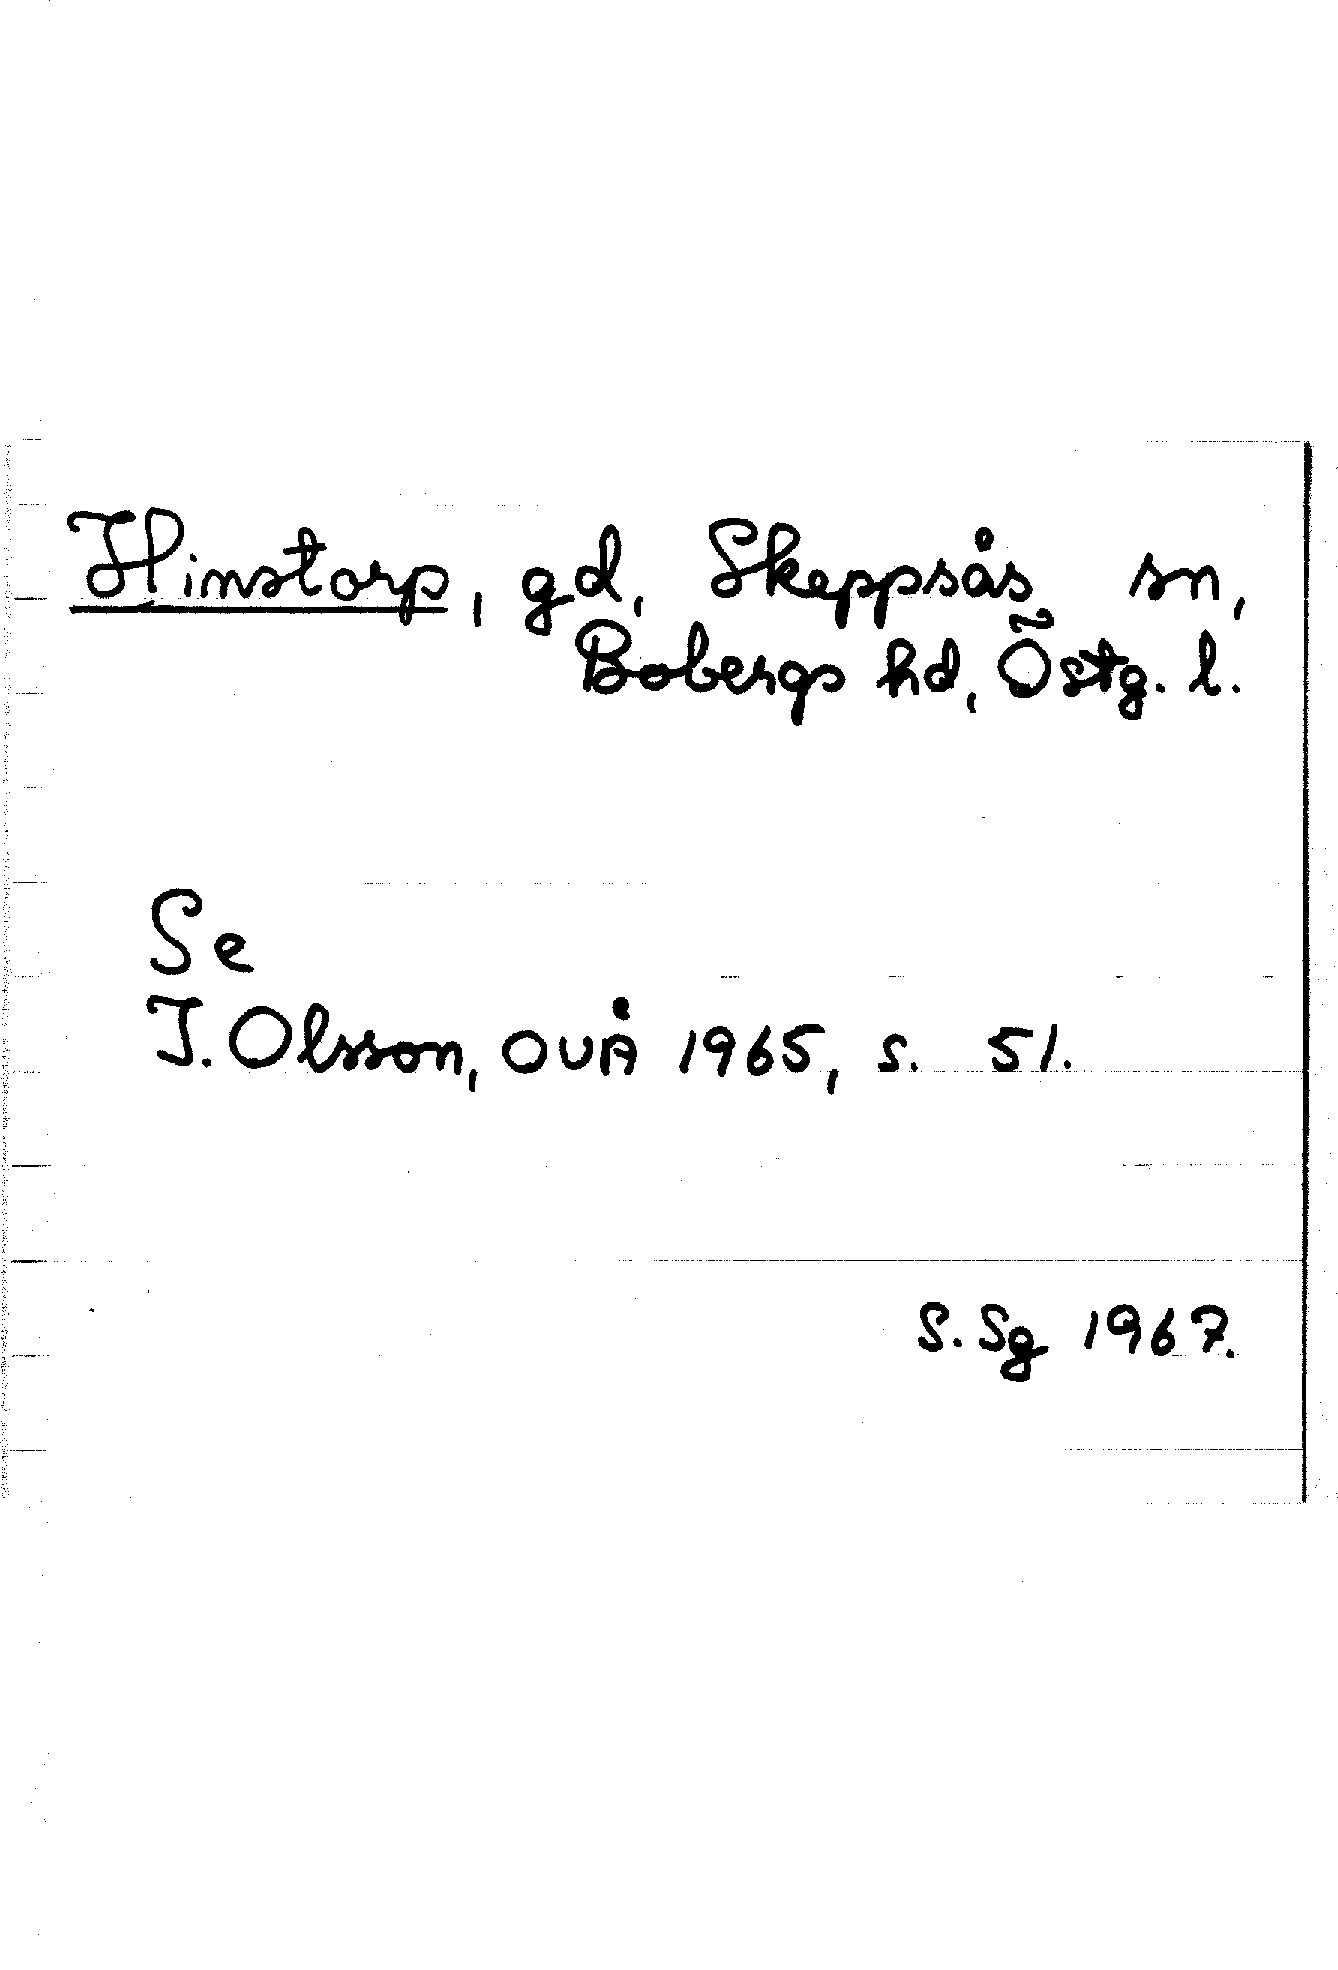 Hinstorp, gd, Skeppsås sn,
Bobergs hd, Östg. l.
Se
I. Olsson, OUÅ 1965, s. 51.
S. Sg 1967.